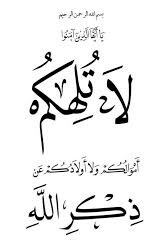 بسم الله الرحمن الرحيم
يَا أَيُّهَا الَّذِينَ آمَنُوا
لَا تُلْهِكُمْ
أَمْوَالُكُمْ وَلَا أَوْلَادُكُمْ عَن
ذِكْرِ اللَّهِ